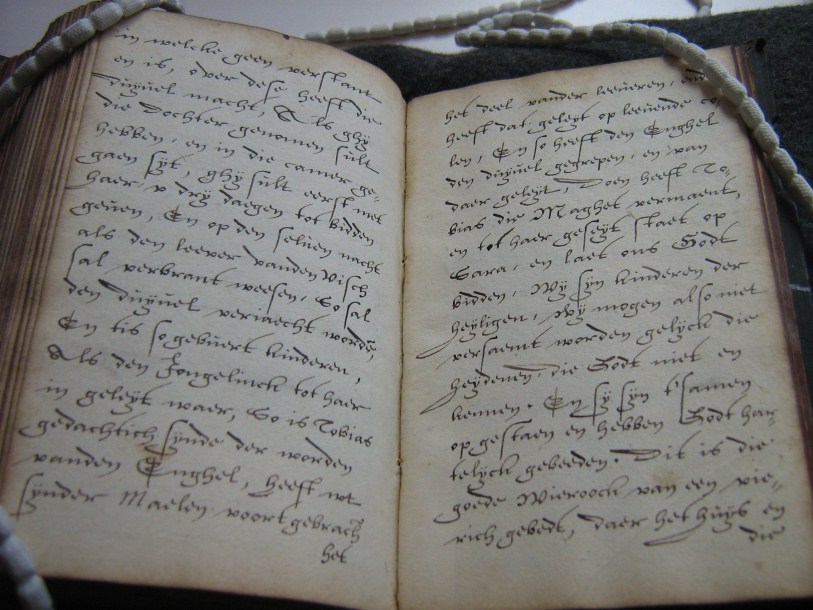 in welcke geen verstant
en is, over dese heeft die
duyuel macht, Als ghy
die Dochter genomen sult
hebben, en in die camer ge-
gaen syt, ghy sult eerst met
haer v dry daegen tot bidden
geuen, En op den seluen nacht
als den leever vanden Visch
sal verbrant weesen, So sal
den duyuel veriaecht worde,
En tis so gebuert kinderen,
Als den Jongelinck tot haer
in geleyt waer, So is Tobias
gedachtich synde der worden
vanden Enghel, heeft wt
synder Maelen voort gebracht
het
het deel vander leeueren, en
heeft dat geleyt op leeuende co-
len, En so heeft den Enghel
den duyuel gegrepen, en van
daer geleyt, Doen heeft To-
bias die Maghet vermaent,
en tot haer geseyt staet op
Sara, en laet ons Godt
bidden, Wy syn kinderen der
heyligen, Wy mogen also niet
versaemt worden gelyck die
heydenen, die Godt niet en
kennen. En sy syn t'samen
op gestaen en hebben Godt har-
telyck gebeeden. Dit is die
goede Wieroock van een vie-
rich gebedt, daer het huys en
die